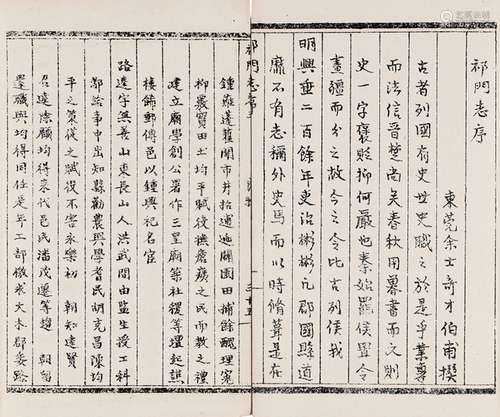 祁門志序
東莞余士奇才伯甫撰
古者列國有史世史職之於是乎業專
而法信晉楚尚矣春秋用魯書而文則
史一字褒貶抑何嚴也秦始罷侯置令
畫疆而分之故今之令比古列侯我
明興垂二百餘年吏治彬彬凡郡國縣道
靡不有志稱外史焉而以時脩葺是在
祁門志卷
三十五
闢市井招逋逃闢園田捕餘醜理冤
抑嚴實田土均平賦役撫瘡痍之民而教之禮
建立廟學創公署作三皇廟築社稷等壇起譙
樓飾郵傳邑以鍾興祀名宦
路達字無善山東長山人洪武間由監生授工科
都給事中出知縣勸農興學耆民胡克昌深均
平之策復之賦役不害永樂初 朝知達賢
召達陰顧均得來代邑民潘茂還等趨 朝留
達職與均得同任是年工部徵求大木郡委路